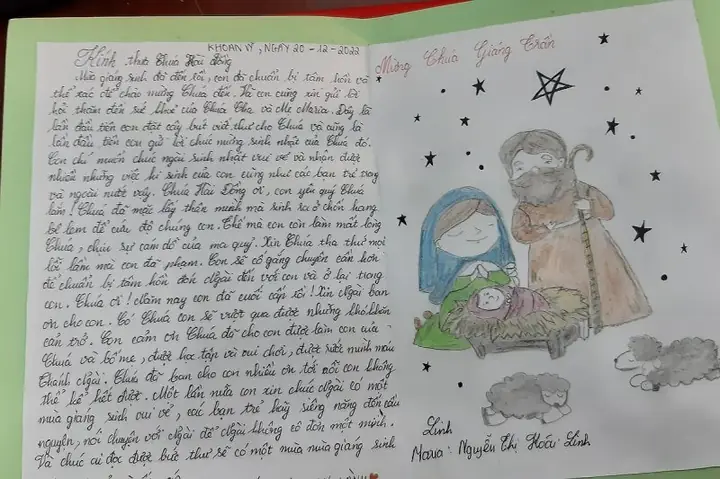 KHOAN VỸ, NGÀY 20-12-2022
Kính thưa Chúa Hài Đồng
Mùa giáng sinh đã đến rồi, con đã chuẩn bị tâm hồn và
thể xác để chào mừng Chúa đến. Và con cũng xin gửi lời
hỏi thăm đến sức khoẻ của Chúa Cha và Mẹ Maria. Đây là
lần đầu tiên con đặt cây bút viết thư cho Chúa và cũng là
lần đầu tiên con gửi lời chúc mừng sinh nhật của Chúa đó.
Con chỉ muốn chúc ngài sinh nhật vui vẻ và nhận được
nhiều những việc hi sinh của con cũng như các bạn trẻ trong
và ngoài nước vậy. Chúa Hài Đồng ơi, con yêu quý Chúa
lắm! Chúa đã mặc lấy thân mình mà sinh ra ở chốn hang
bê lem để cứu độ chúng con. Thế mà con còn làm mất lòng
Chúa, chịu sự cám dỗ của ma quỷ. Xin Chúa tha thứ mọi
lỗi lầm mà con đã phạm. Con sẽ cố gắng chuyên cần hơn
để chuẩn bị tâm hồn đón Ngài đến với con và ở lại trong
con. Chúa ơi! Năm nay con đã cuối cấp rồi! Xin Ngài ban
ơn cho con. Có Chúa con sẽ vượt qua được những khó khăn
cản trở. Con cảm ơn Chúa đã cho con được làm con của
Chúa và bố mẹ, được học tập và vui chơi, được rước mình máu
Thánh Ngài. Chúa đã ban cho con nhiều ơn tới nỗi con không
thể kể hết được. Một lần nữa con xin chúc Ngài có một
mùa giáng sinh vui vẻ, các bạn trẻ hãy siêng năng đến cầu
nguyện, nói chuyện với Ngài để Ngài không cô đơn một mình.
Và chúc ai đọc được bức thư sẽ có một mùa mùa giáng sinh
Mừng Chúa Giáng Trần
Linh
Maria: Nguyễn Thị Hoài Linh